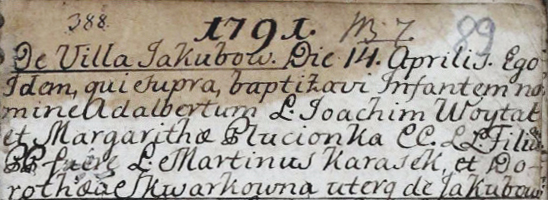 388. 1791. M 7. 89
De Villa Jakubow. Die 14. Aprilis. Ego
Idem, qui supra, baptizavi Infantem no
mine Adalbertum L. Joachim Woytat
et Margarithæ Plucionka CC. LL. Filiū
PP. fuere L. Martinus Karasek, et Do-
rotheæ Skwarkowna uterq de Jakubow